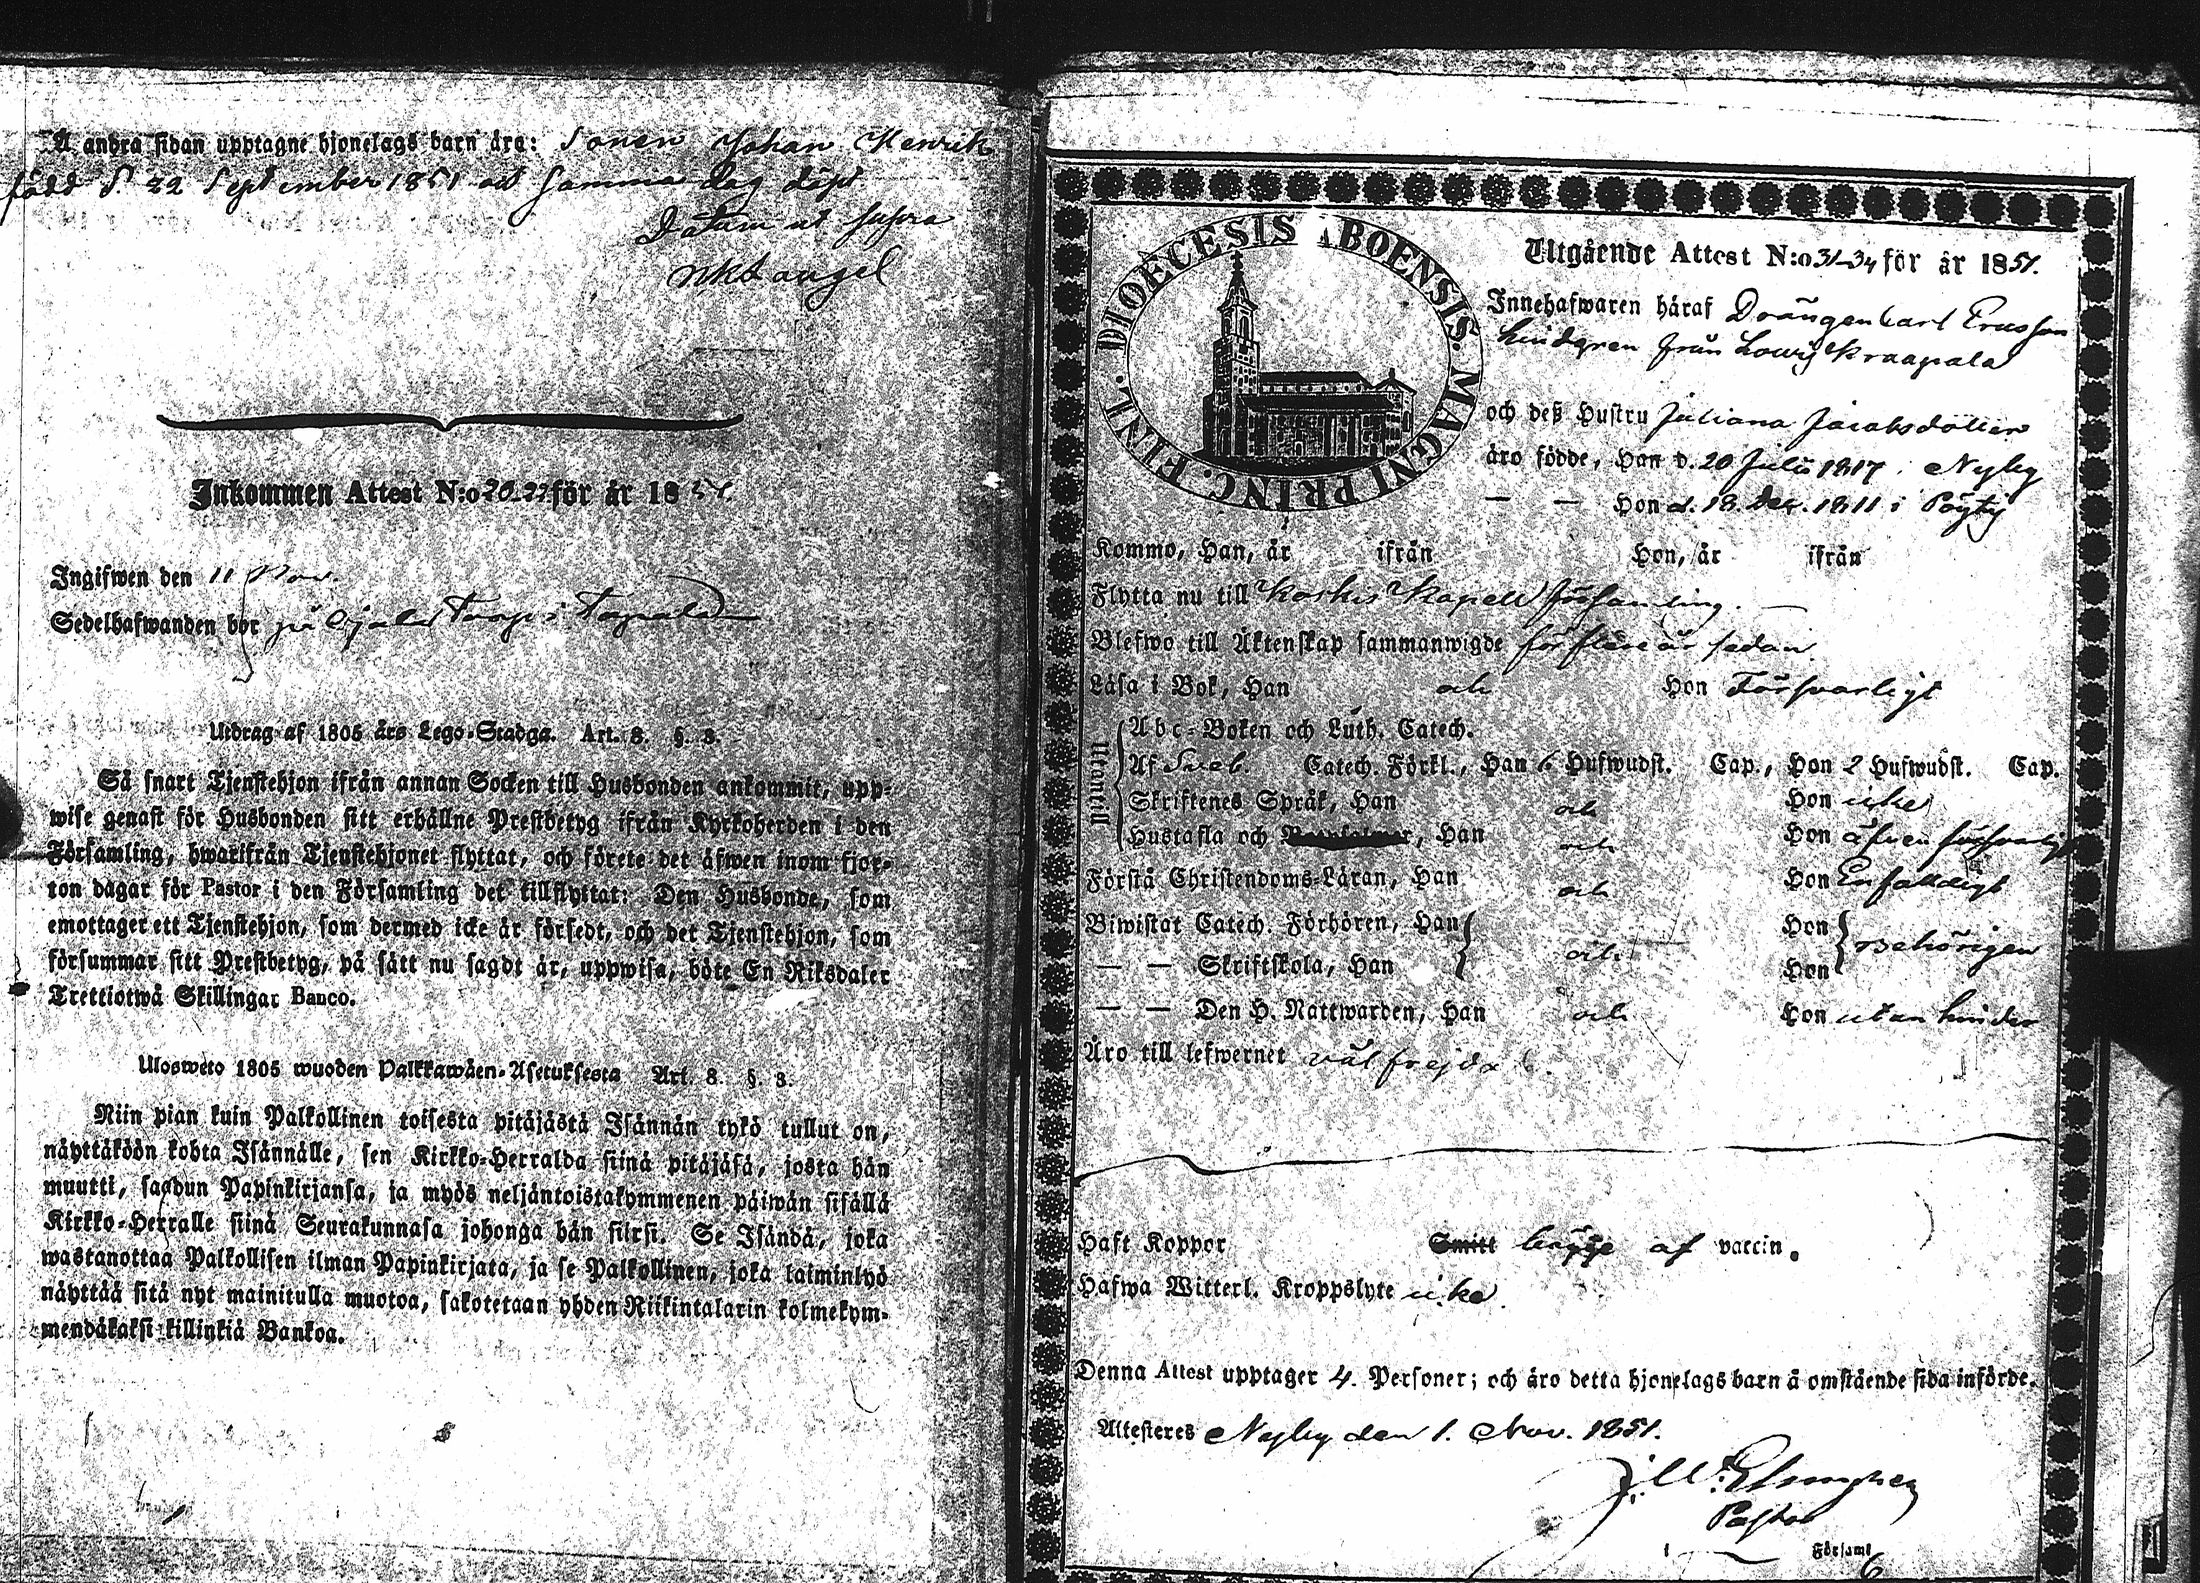 Å andra sidan upptagne hjonelags barn äro: Sonen Johan Henrik
född d. 22 September 1851 och samma dag döpt
Datum ut supra
Inkommen Attest N:o 20-22 för år 1851.
Ingifwen den 11 Nov.
Sedelhafwanden bor på
Utdrag af 1805 års Lego-Stadga. Art. 8. §. 3.
Så snart Tjenstehjon ifrån annan Socken till Husbonden ankommit, upp-
wise genast för Husbonden sitt erhållne Prestbetyg ifrån Kyrkoherden i den
Församling, hwarifrån Tjenstehjonet flyttat, och förete det äfwen inom fjor-
ton dagar för Pastor i den Församling det tillflyttat: Den Husbonde, som
emottager ett Tjenstehjon, som dermed icke är försedt, och det Tjenstehjon, som
försummar sitt Prestbetyg, på sätt nu sagdt är, uppwisa, böte En Riksdaler
Trettiotwå Skillingar Banco.
Ulosweto 1805 wuoden Palkkawäen-Asetuksesta Art. 8. §. 3.
Niin pian kuin Palkollinen toisesta pitäjästä Isännän tykö tullut on,
näyttäköön kohta Isännälle, sen Kirkko-Herralda siinä pitäjäsä, josta hän
muutti, saadun Papinkirjansa, ja myös neljäntoistakymmenen päiwän sisällä
Kirkko-Herralle siinä Seurakunnasa johonga hän siirsi. Se Isändä, joka
wastanottaa Palkollisen ilman Papinkirjata, ja se Palkollinen, joka laiminlyö
näyttää sitä nyt mainitulla muotoa, sakotetaan yhden Riikintalarin kolmekym-
mendäkaksi killinkiä Bankoa.
FINL. DIOECESIS ABOENSIS. MAGNI PRINC.
Utgående Attest N:o 31-34 för år 1851.
Innehafwaren häraf Drängen Carl Ersson
Lindgren från
och deß Hustru Juliana Jacobsdotter
äro födde, Han d. 20 Julii 1817 i Nyby
— — Hon d. 18. Dec. 1811 i Pöyty
Kommo, Han, år ifrån Hon, år ifrån
Flytta nu till Koskis Kapell församling. —
Blefwo till Äktenskap sammanwigde för flere år sedan.
Läsa i Bok, Han och Hon Försvarligt
Utantill
Abc-Boken och Luth. Catech.
Af Sveb. Catech. Förkl., Han 6 Hufwudst. Cap., Hon 2 Hufwudst. Cap.
Skriftenes Språk, Han och Hon icke
Hustafla och , Han och Hon äfven försvarligt
Förstå Christendoms-Läran, Han och Hon Enfaldigt
Biwistat Catech. Förhören, Han Hon
och behörigen
— — Skriftskola, Han Hon
— — Den H. Nattwarden, Han och Hon utan hinder
Äro till lefwernet väl frejdade.
Haft Koppor Smitt begge af vaccin.
Hafwa Witterl. Kroppslyte icke.
Denna Attest upptager 4. Personer; och äro detta hjonelags barn å omstående sida införde.
Attesteres Nyby den 1. Nov. 1851.
Pastor
i Församl